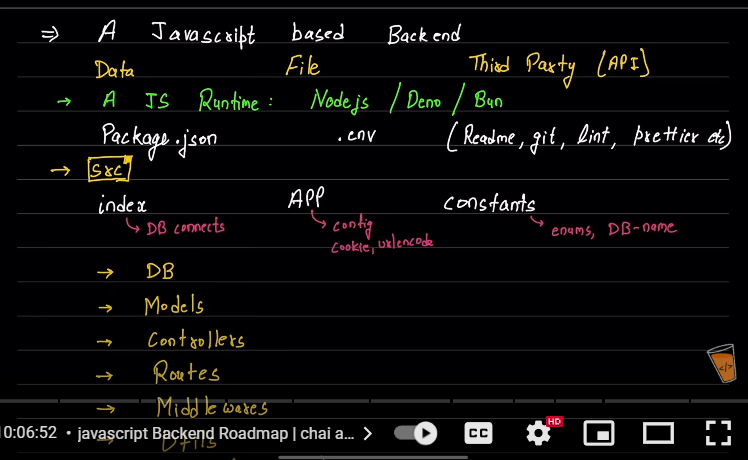 ⇒ A Javascript based Backend
Data File Third Party (API)
→ A JS Runtime: Nodejs / Deno / Bun
Package.json .env (Readme, git, lint, prettier etc)
→ src
index APP constants
↳ DB connects ↳ config ↳ enums, DB-name
cookie, urlencode
→ DB
→ Models
→ Controllers
→ Routes
→ Middlewares
→ Utils
</>
0:06:52 • javascript Backend Roadmap | chai a... >
CC
HD